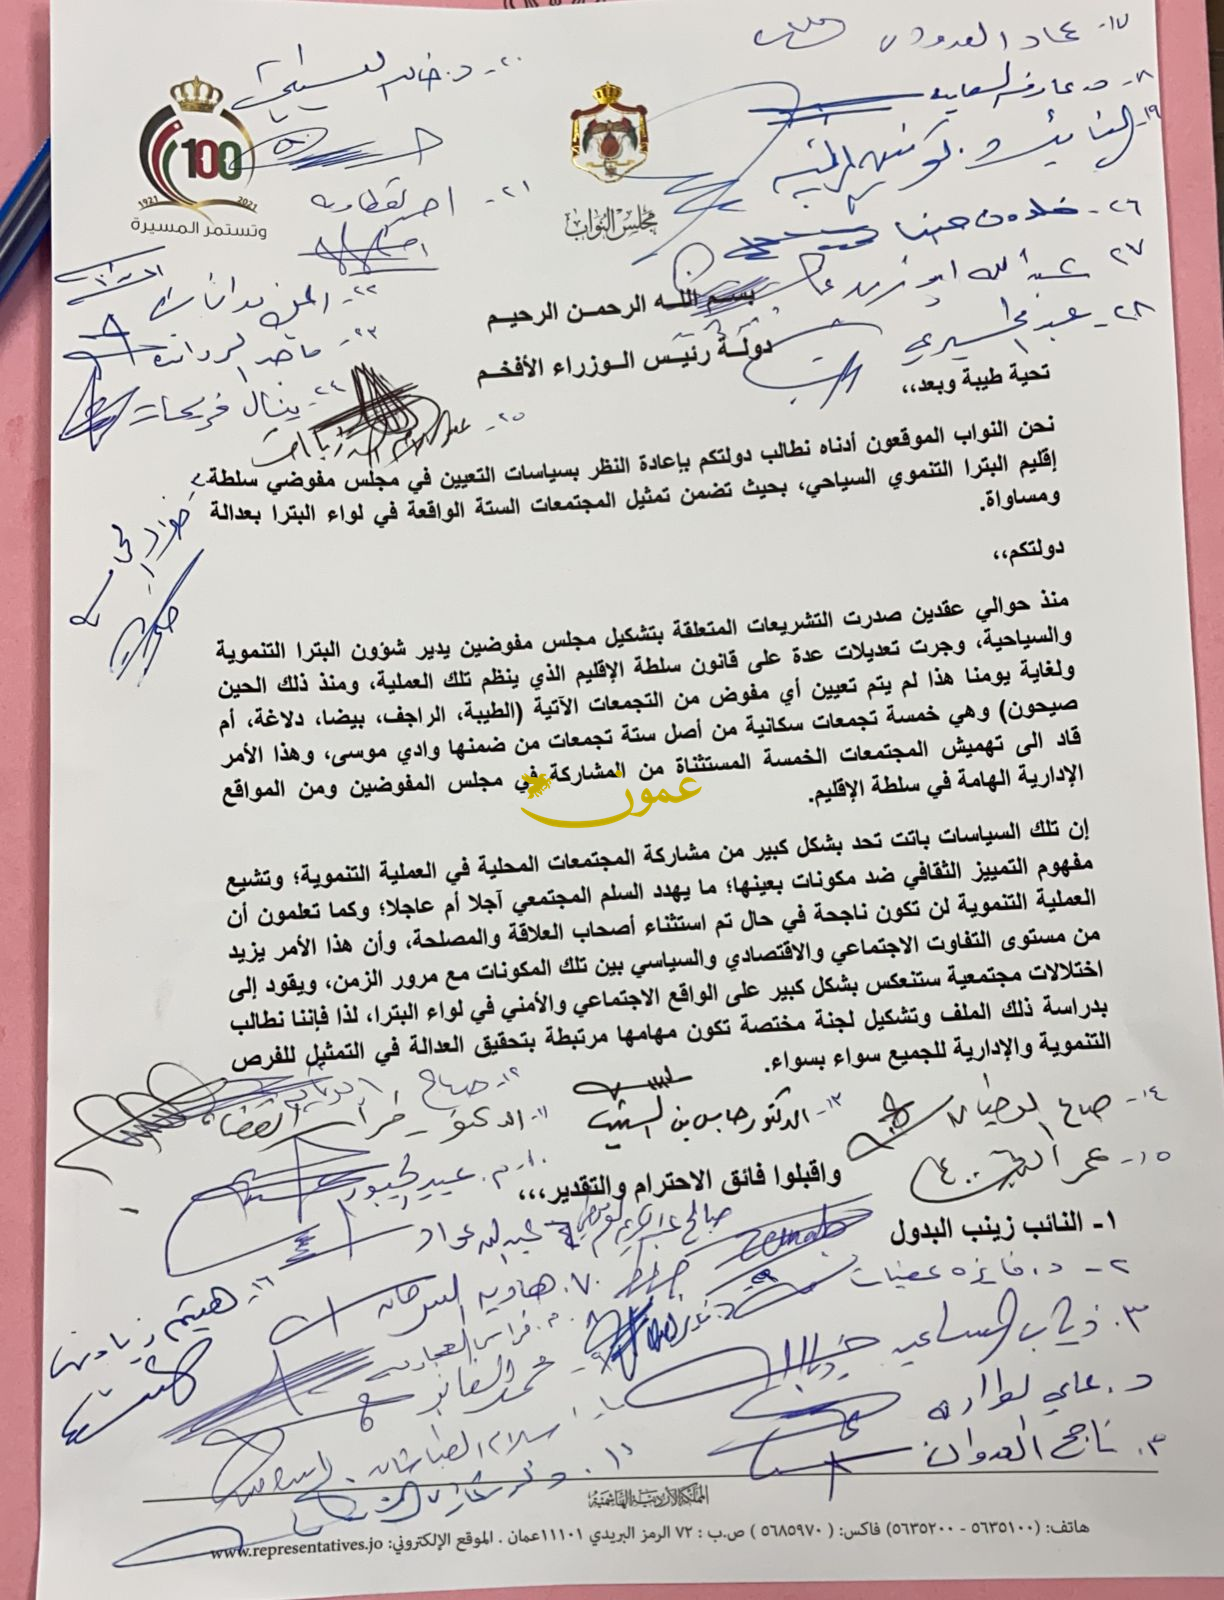 ١٧- عماد العدوان
١٨- د. عارف السعايده
١٩-
٢٠- د. خالد
٢١-
٢٦- خلدون حينا
٢٧ عبدالله ابو زيد
٢٨-
100
1921 2021
وتستمر المسيرة
مجلس النواب
بسم الله الرحمن الرحيم
دولة رئيس الوزراء الأفخم
٢٢-
٢٣- ماجد الرواشده
٢٤- ينال فريحات
٢٥-
تحية طيبة وبعد،،
نحن النواب الموقعون أدناه نطالب دولتكم بإعادة النظر بسياسات التعيين في مجلس مفوضي سلطة
إقليم البترا التنموي السياحي، بحيث تضمن تمثيل المجتمعات الستة الواقعة في لواء البترا بعدالة
ومساواة.
دولتكم،،
منذ حوالي عقدين صدرت التشريعات المتعلقة بتشكيل مجلس مفوضين يدير شؤون البترا التنموية
والسياحية، وجرت تعديلات عدة على قانون سلطة الإقليم الذي ينظم تلك العملية، ومنذ ذلك الحين
ولغاية يومنا هذا لم يتم تعيين أي مفوض من التجمعات الآتية (الطيبة، الراجف، بيضا، دلاغة، أم
صيحون) وهي خمسة تجمعات سكانية من أصل ستة تجمعات من ضمنها وادي موسى، وهذا الأمر
قاد الى تهميش المجتمعات الخمسة المستثناة من المشاركة في مجلس المفوضين ومن المواقع
الإدارية الهامة في سلطة الإقليم.
عمون
إن تلك السياسات باتت تحد بشكل كبير من مشاركة المجتمعات المحلية في العملية التنموية؛ وتشيع
مفهوم التمييز الثقافي ضد مكونات بعينها؛ ما يهدد السلم المجتمعي آجلا أم عاجلا؛ وكما تعلمون أن
العملية التنموية لن تكون ناجحة في حال تم استثناء أصحاب العلاقة والمصلحة، وأن هذا الأمر يزيد
من مستوى التفاوت الاجتماعي والاقتصادي والسياسي بين تلك المكونات مع مرور الزمن، ويقود إلى
اختلالات مجتمعية ستنعكس بشكل كبير على الواقع الاجتماعي والأمني في لواء البترا، لذا فإننا نطالب
بدراسة ذلك الملف وتشكيل لجنة مختصة تكون مهامها مرتبطة بتحقيق العدالة في التمثيل للفرص
التنموية والإدارية للجميع سواء بسواء.
١٢- صباح
١١- الدكتور فراس القضاة
١٣- الدكتور حابس بن الشبيب
١٤-
١٥- عمر
واقبلوا فائق الاحترام والتقدير،،،
١- النائب زينب البدول
٢- د. فايزه عضيبات
٣. ذياب المساعيد
د. علي طوالبه
٣. ناجح العدوان
٧.
م. فراس العجارمه
محمد الفايز
١٦- هيثم زيادين
المملكة الأردنية الهاشمية
هاتف: (٥٦٣٥١٠٠ - ٥٦٣٥٢٠٠) فاكس: ( ٥٦٨٥٩٧٠ ) ص.ب : ٧٢ الرمز البريدي ١١١٠١عمان . الموقع الإلكتروني: www.representatives.jo